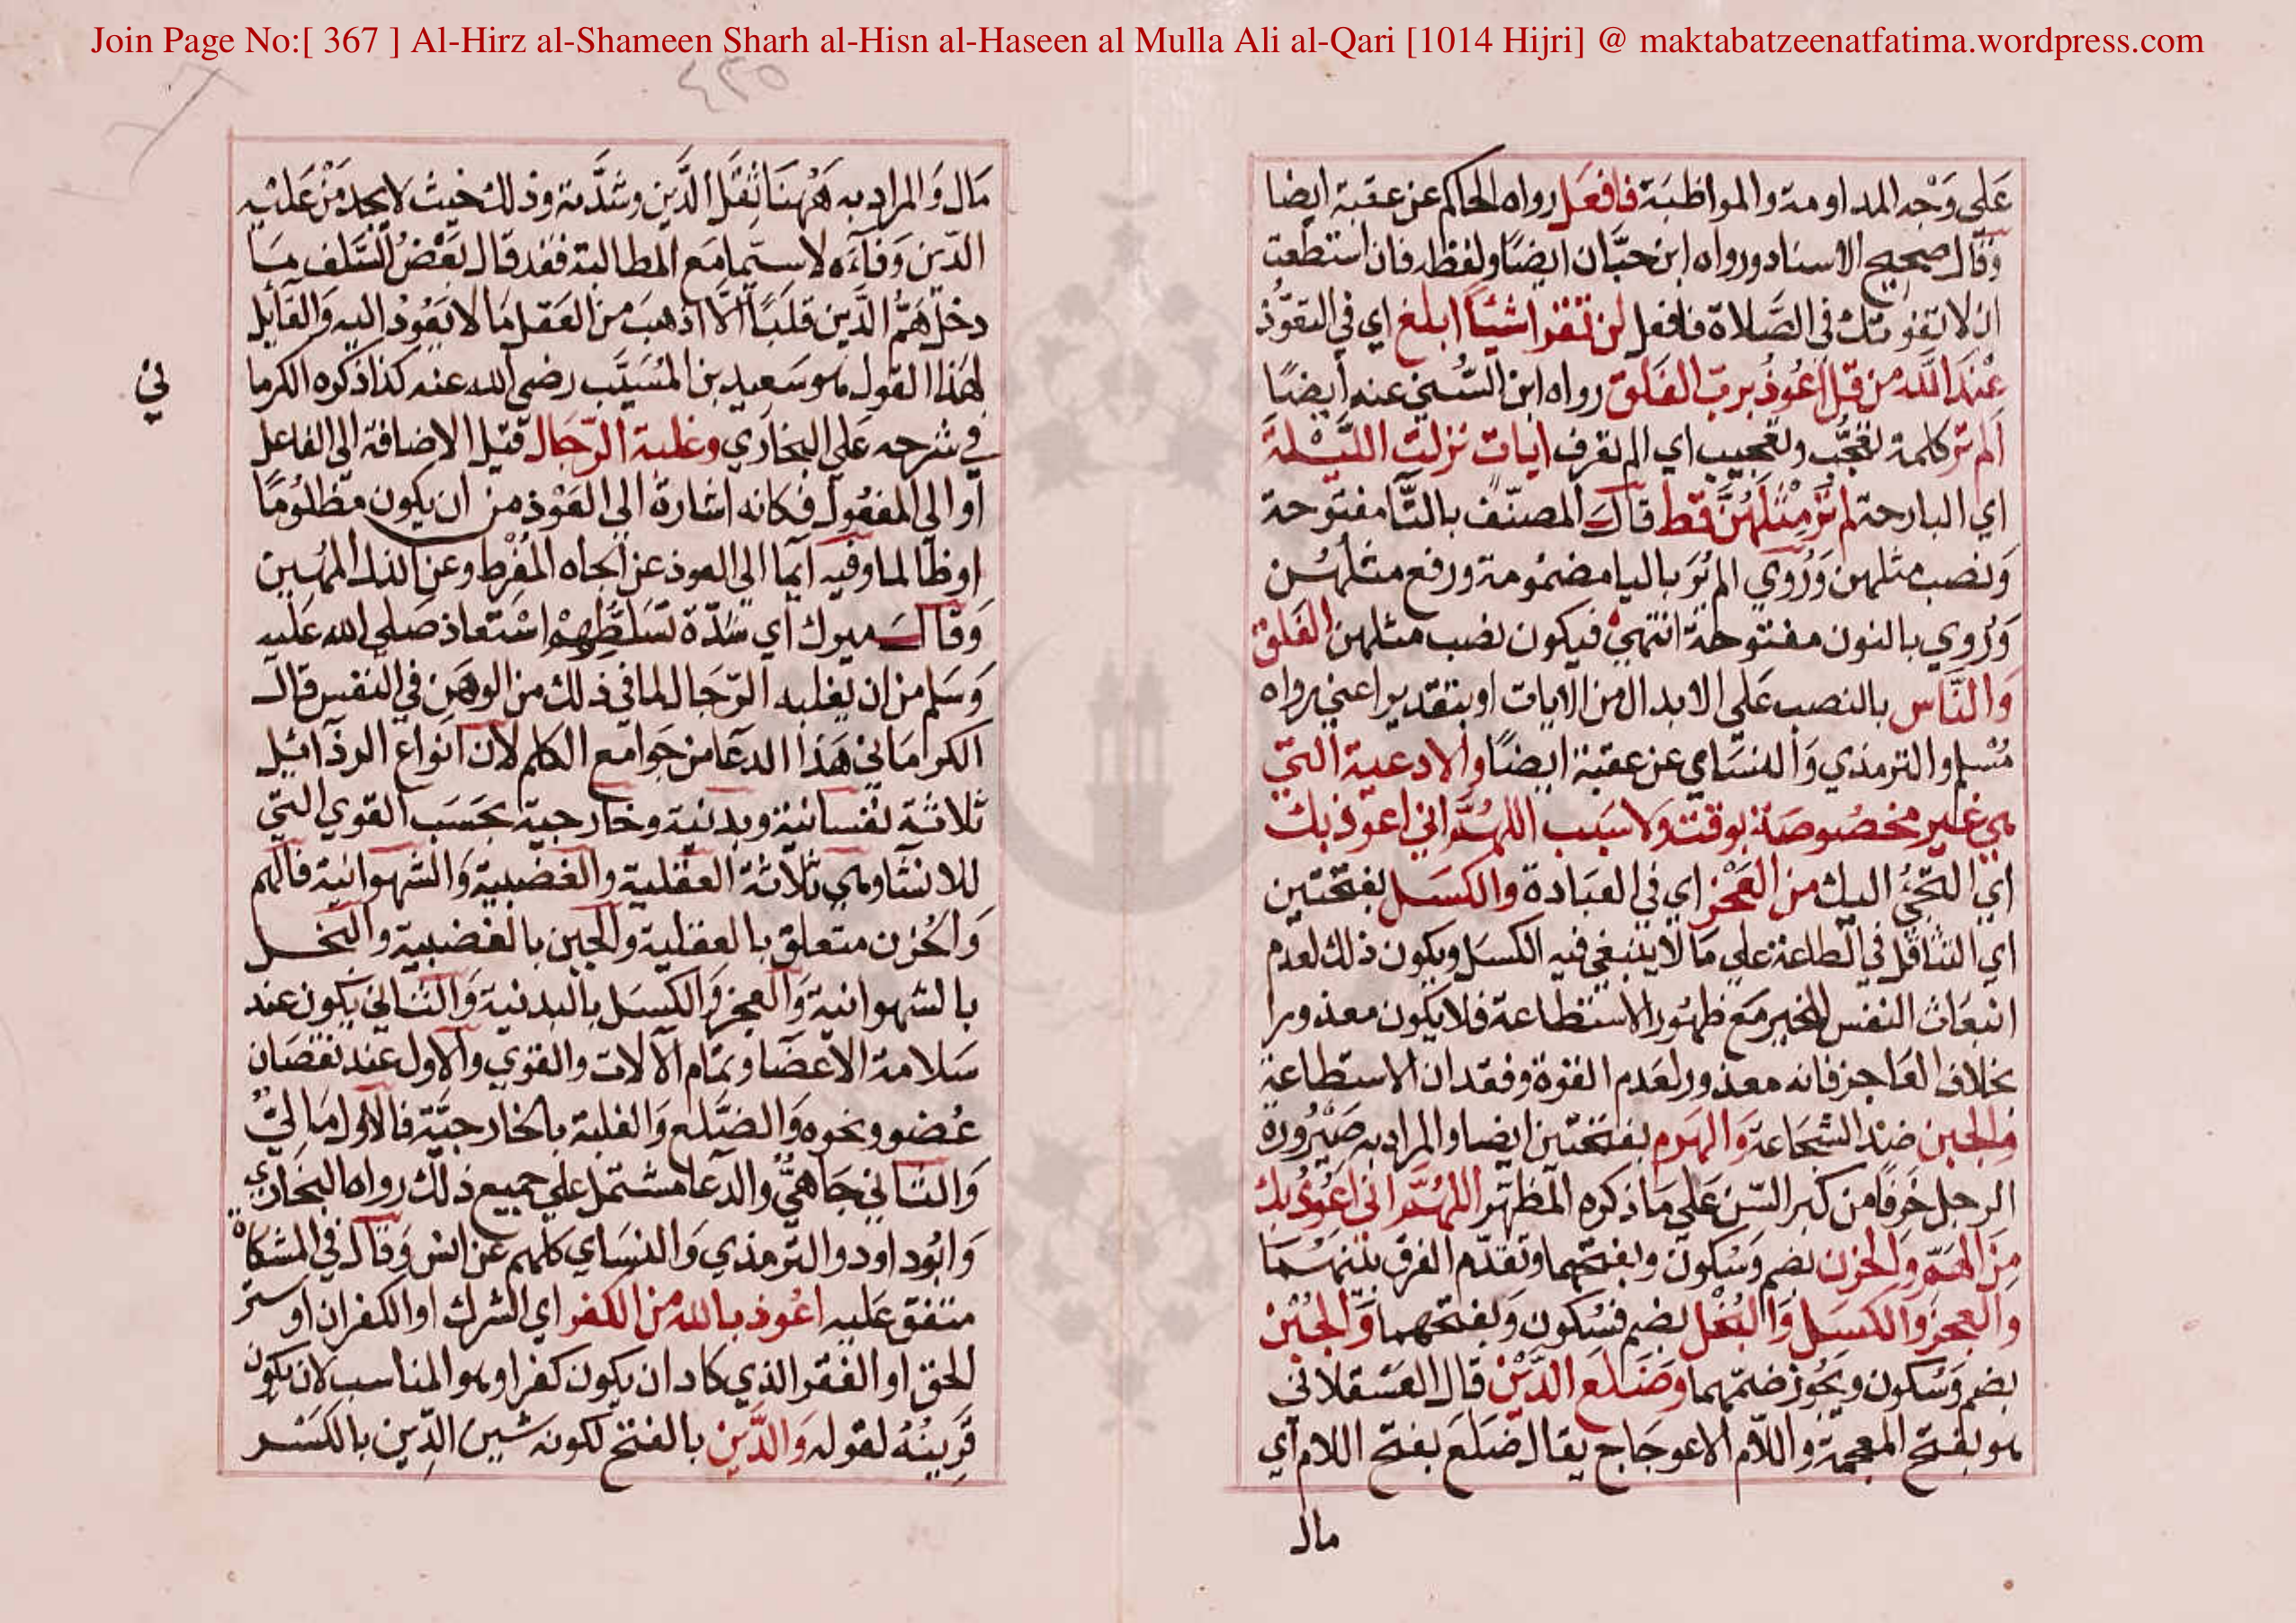 Join Page No:[ 367 ] Al-Hirz al-Shameen Sharh al-Hisn al-Haseen al Mulla Ali al-Qari [1014 Hijri] @ maktabatzeenatfatima.wordpress.com
٤٣٥
على وجه المداومة والمواظبة فافعل رواه الحاكم عن عقبة ايضا
وقال صحيح الاسناد ورواه ابن حبان ايضا ولفظه فان استطعت
ان لا تفوتك في الصلاة فافعل لن تقرا شيئا ابلغ اي في التعوذ
عند الله من قل اعوذ برب الفلق رواه ابن السني عنه ايضا
الم تر كلمة تعجب وتعجيب اي الم تعرف ايات نزلت الليلة
اي البارحة لم تر مثلهن قط قال المصنف بالتا مفتوحة
ونصب مثلهن وروي الم ير باليا مضمومة ورفع مثلهن
وروي بالنون مفتوحة انتهى فيكون نصب مثلهن الفلق
والناس بالنصب على الابدال من الايات او بتقدير اعني رواه
مسلم والترمذي والنساي عن عقبة ايضا والادعية التي
هي غير مخصوصة بوقت ولا سبب اللهم اني اعوذ بك
اي التجئ اليك من العجز اي في العبادة والكسل بفتحتين
اي التثاقل في الطاعة على ما لا ينبغي فيه الكسل ويكون ذلك لعدم
انبعاث النفس للخير مع ظهور الاستطاعة فلا يكون معذورا
بخلاف العاجز فانه معذور لعدم القوة وفقدان الاستطاعة
والجبن ضد الشجاعة والهرم بفتحتين ايضا والمراد به صيرورة
الرجل خرفا من كبر السن على ما ذكره المظهر اللهم اني اعوذ بك
من الهم والحزن بضم وسكون وبفتحهما وتقدم الفرق بينهما
والعجز والكسل والبخل بضم فسكون وبفتحهما والجبن
بضم وسكون ويجوز ضمهما وضلع الدين قال العسقلاني
هو بفتح المعجمة واللام الاعوجاج يقال ضلع بفتح اللام اي
مال
مال والمراد به ههنا ثقل الدين وشدته وذلك حيث لا يجد من عليه
الدين وفاءه لا سيما مع المطالبة فقد قال بعض السلف ما
دخل هم الدين قلبا الا اذهب من العقل ما لا يعود اليه والقائل
لهذا القول هو سعيد بن المسيب رضي الله عنه كذا ذكره الكرما
ني
في شرحه على البخاري وغلبة الرجال قيل الاضافة الى الفاعل
او الى المفعول فكانه اشارة الى العوذ من ان يكون مظلوما
او ظالما وفيه ايما الى العوذ عن الجاه المفرط وعن الذل المهين
وقال ميرك اي شدة تسلطهم استعاذ صلى الله عليه
وسلم من ان يغلبه الرجال لما في ذلك من الوهن في النفس قال
الكرماني هذا الدعا من جوامع الكلم لان انواع الرذائيل
ثلاثة نفسانية وبدنية وخارجية بحسب القوي التي
للانسا وهي ثلاثة العقلية والغضبية والشهوانية فالهم
والحزن متعلق بالعقلية والجبن بالغضبية والبخل
بالشهوانية والعجز والكسل بالبدنية والثاني يكون عند
سلامة الاعضا وتمام الآلات والقوي والاول عند نقصان
عضو ونحوه والضلع والغلبة بالخارجية فالاول مالي
والثاني جاهي والدعا مشتمل على جميع ذلك رواه البخاري
وابو داود والترمذي والنساي كلهم عن انس وقال في المشكاة
متفق عليه اعوذ بالله من الكفر اي الشرك او الكفران او ستر
الحق او الفقر الذي كاد ان يكون كفرا وهو المناسب لان يكون
قرينه لقوله والدين بالفتح لكونه شين الدين بالكسر